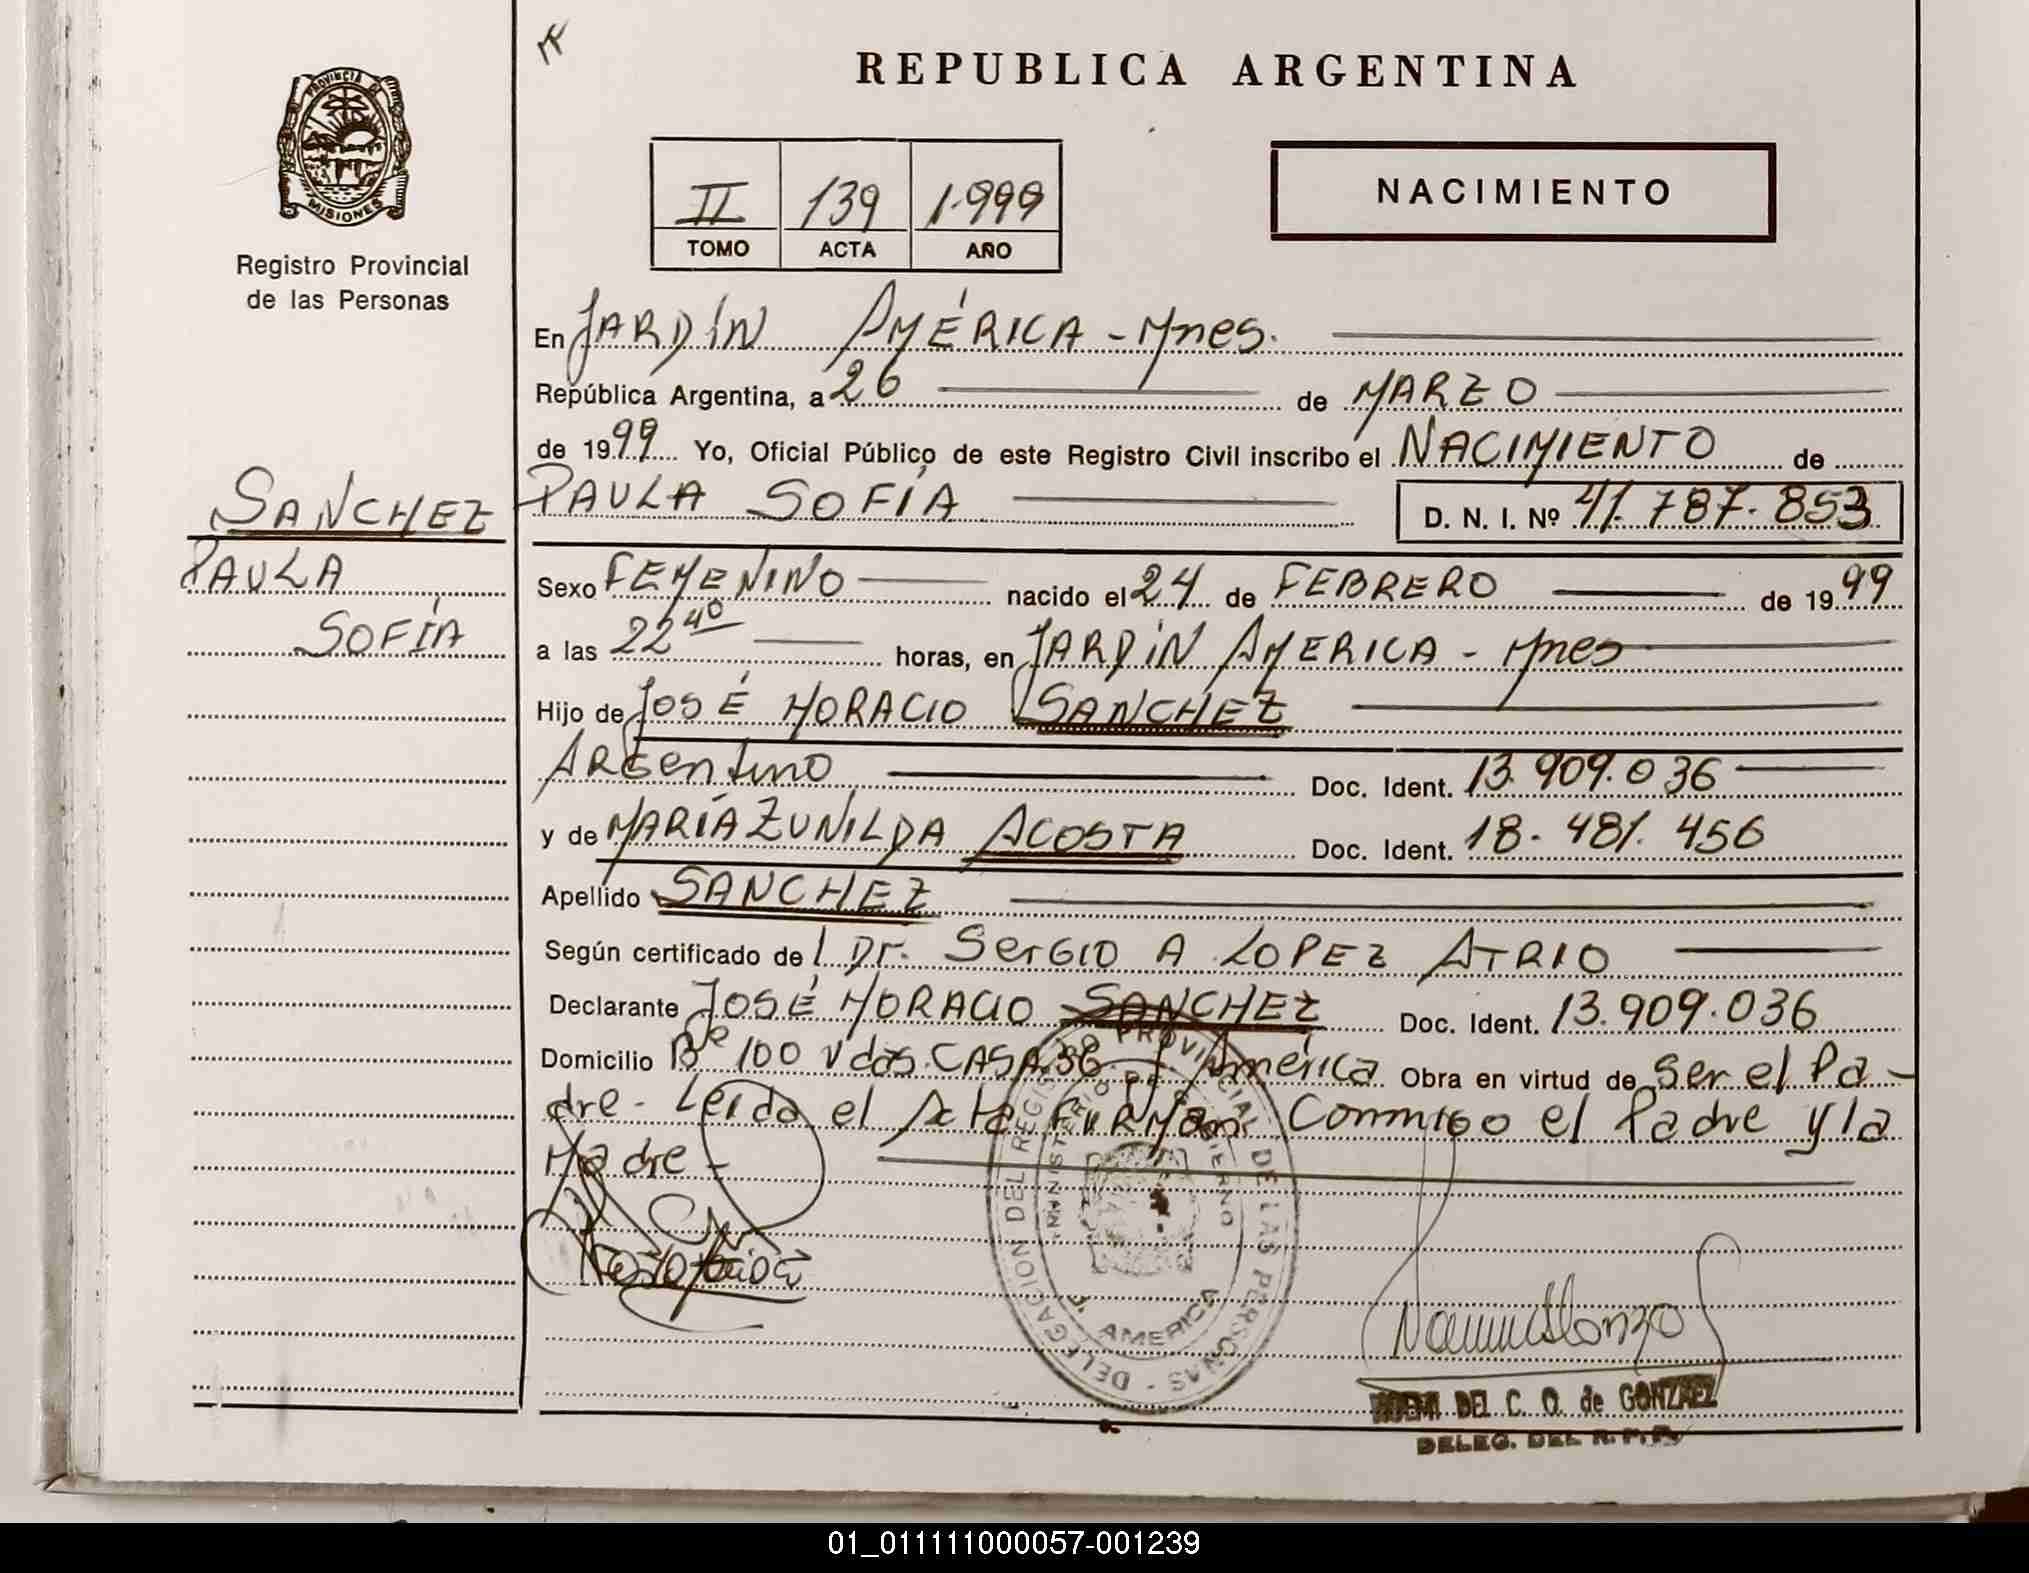 REPUBLICA ARGENTINA
PROVINCIA DE
MISIONES
Registro Provincial
de las Personas
II 139 1.999
TOMO ACTA AÑO
NACIMIENTO
En JARDÍN AMÉRICA - Mnes.
República Argentina, a 26 de MARZO
de 1999 Yo, Oficial Público de este Registro Civil inscribo el NACIMIENTO de
PAULA SOFÍA D. N. I. Nº 41.787.853
SANCHEZ
PAULA
SOFÍA
Sexo FEMENINO nacido el 24 de FEBRERO de 1999
a las 22 40 horas, en JARDÍN AMERICA - Mnes
Hijo de JOSÉ HORACIO SANCHEZ
Argentino Doc. Ident. 13.909.036
y de MARÍA ZUNILDA ACOSTA Doc. Ident. 18.481.456
Apellido SANCHEZ
Según certificado del Dr. Sergio A LOPEZ ATRIO
Declarante JOSÉ HORACIO SANCHEZ Doc. Ident. 13.909.036
Domicilio Bº 100 Vdas. CASA 36 J América Obra en virtud de ser el Pa-
dre - Leída el Acta FIRMAN Conmigo el Padre y la
Madre -
DELEGACION DEL REGISTRO PROVINCIAL DE LAS PERSONAS -
MINISTERIO DE GOBIERNO
J. AMERICA
NOEMI DEL C. O. de GONZALEZ
DELEG. DEL R. P. P.
01_011111000057-001239